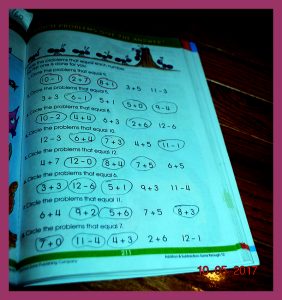 the problems that equal each number.
one is done for you.
Circle the problems that equal 9.
10 - 1 2 + 7 8 + 1 3 + 5 11 - 3
Circle the problems that equal 5.
3 + 3 6 - 1 5 + 1 5 + 0 9 - 4
Circle the problems that equal 8.
10 - 2 4 + 4 6 + 3 2 + 6 12 - 6
Circle the problems that equal 10.
12 - 3 6 + 4 7 + 3 4 + 5 11 - 1
Circle the problems that equal 12.
4 + 7 12 - 0 8 + 4 7 + 5 6 + 5
Circle the problems that equal 6.
3 + 3 12 - 6 5 + 1 9 + 3 11 - 4
Circle the problems that equal 11.
6 + 4 9 + 2 5 + 6 7 + 5 8 + 3
Circle the problems that equal 7.
7 + 0 11 - 4 4 + 3 2 + 6 12 - 1
Publishing Company 211 Addition & Subtraction: Sums through 12
2017